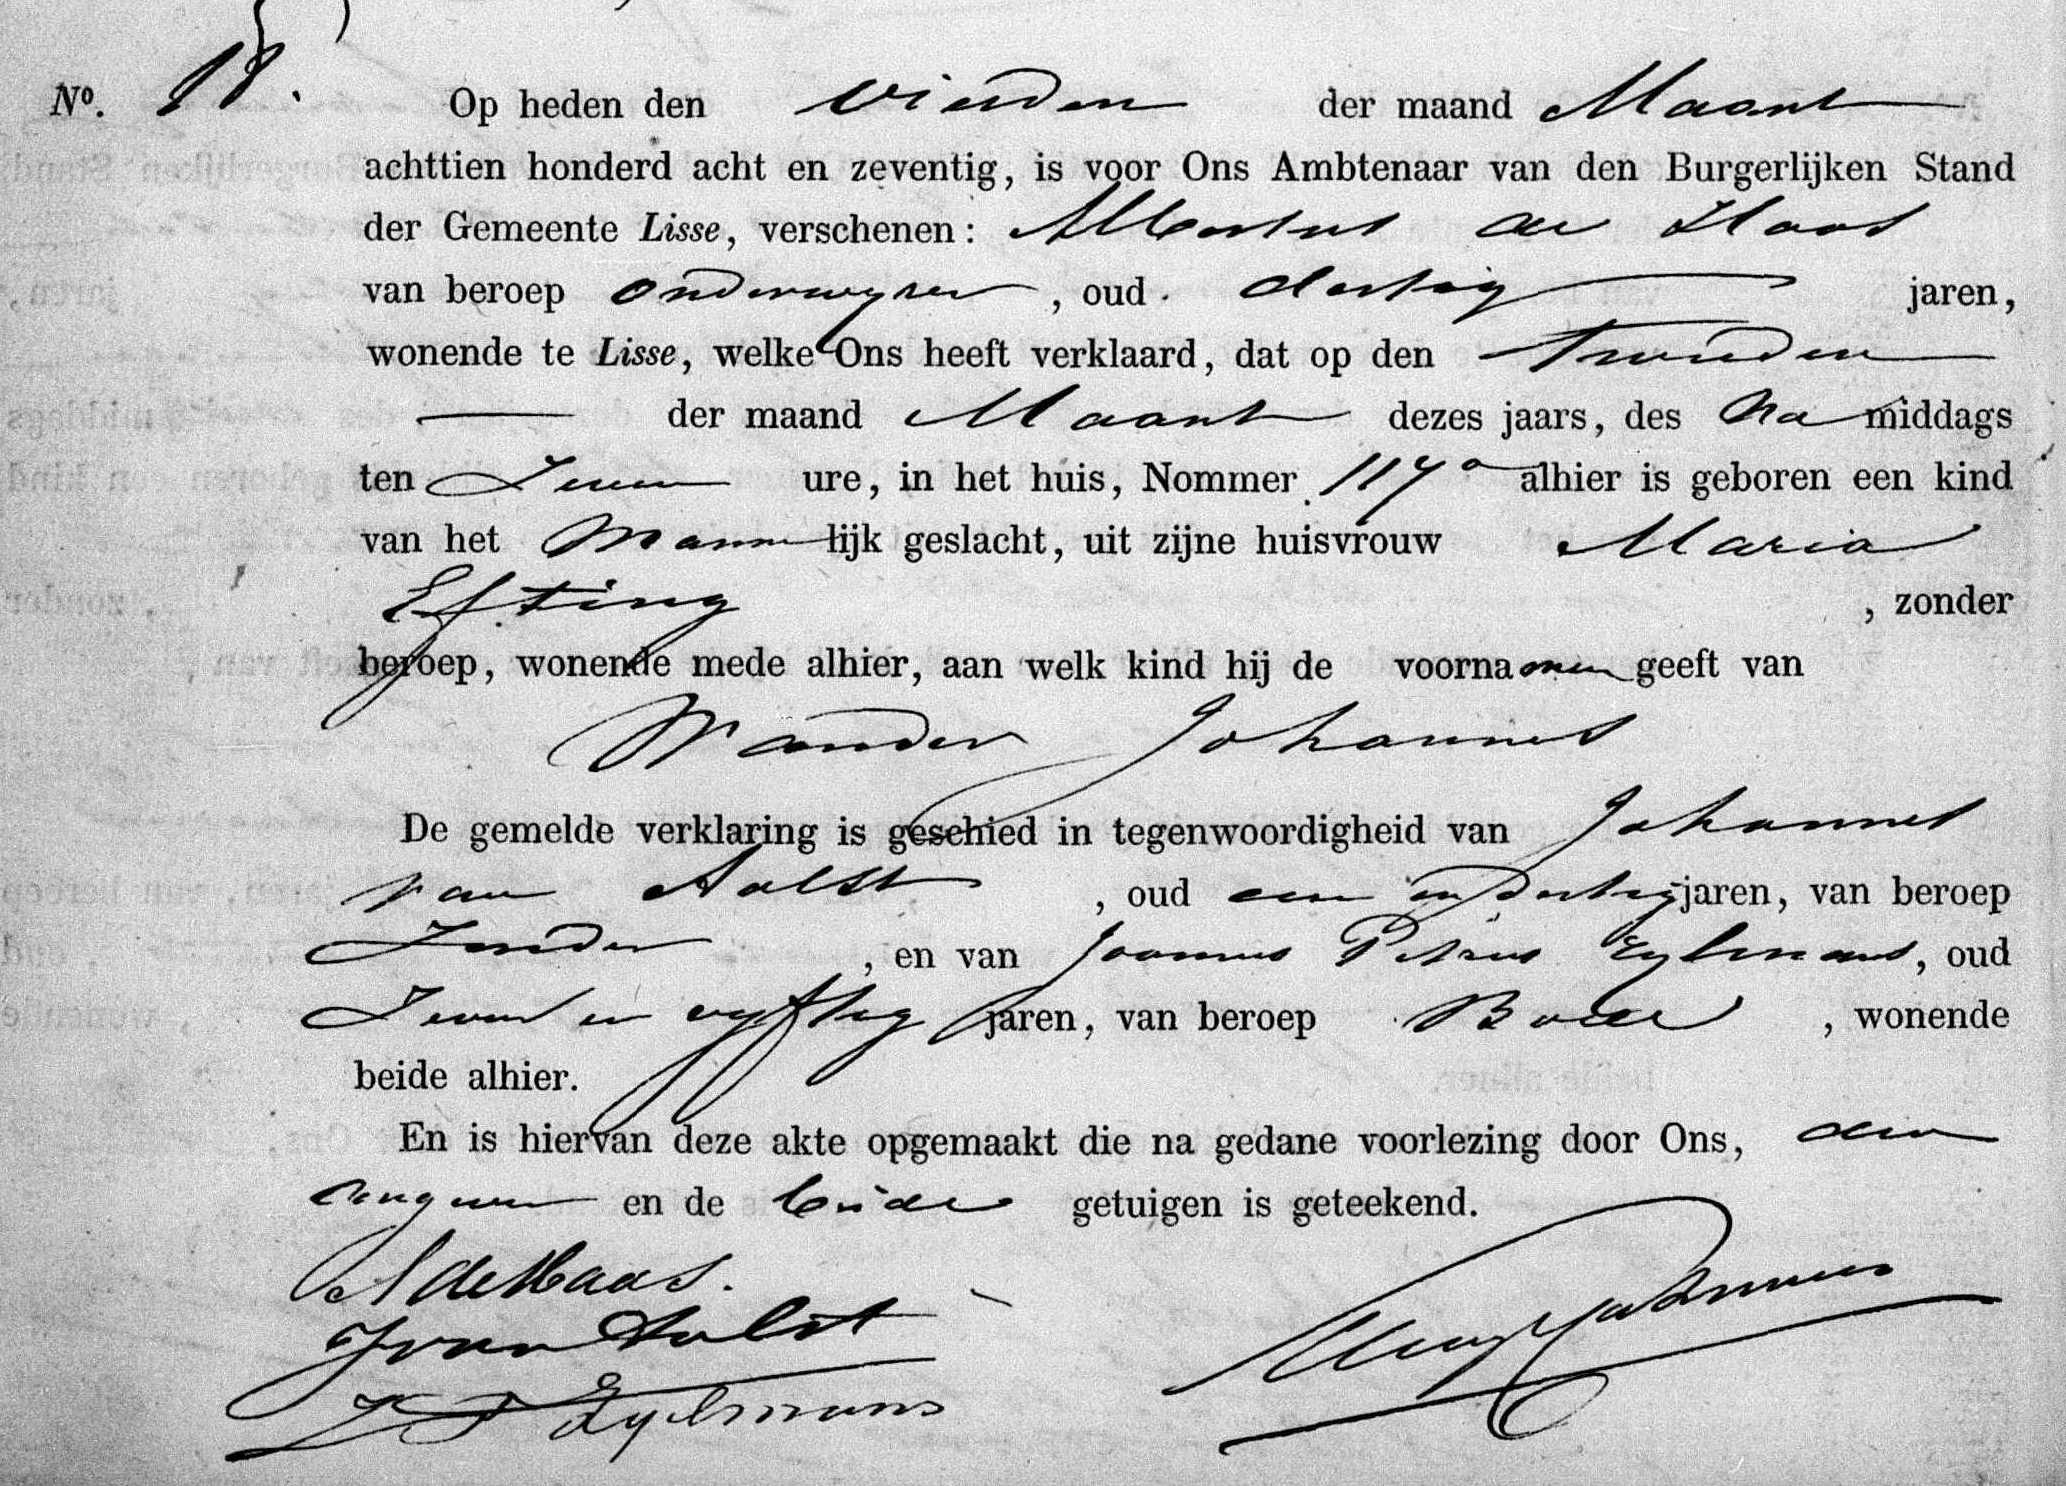 No. 18.
Op heden den vierden der maand Maart
achttien honderd acht en zeventig, is voor Ons Ambtenaar van den Burgerlijken Stand
der Gemeente Lisse, verschenen: Albertus de Haas
van beroep onderwyzer, oud dertig jaren,
wonende te Lisse, welke Ons heeft verklaard, dat op den tweeden
der maand Maart dezes jaars, des na middags
ten zeven ure, in het huis, Nommer 117a alhier is geboren een kind
van het Mannelijk geslacht, uit zijne huisvrouw Maria
Efting, zonder
beroep, wonende mede alhier, aan welk kind hij de voornamen geeft van
Wander Johannes
De gemelde verklaring is geschied in tegenwoordigheid van Johannes
van Aalst, oud een en dertig jaren, van beroep
, en van Joannes Petrus Eylmans, oud
Zeven en vyftig jaren, van beroep Bode, wonende
beide alhier.
En is hiervan deze akte opgemaakt die na gedane voorlezing door Ons, den
aangever en de beide getuigen is geteekend.
A de Haas.
J van Aalst
J P Eylmans